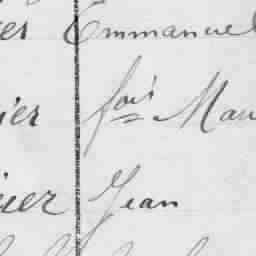 ers Emmanuel
ier fois Mau
ier Jean